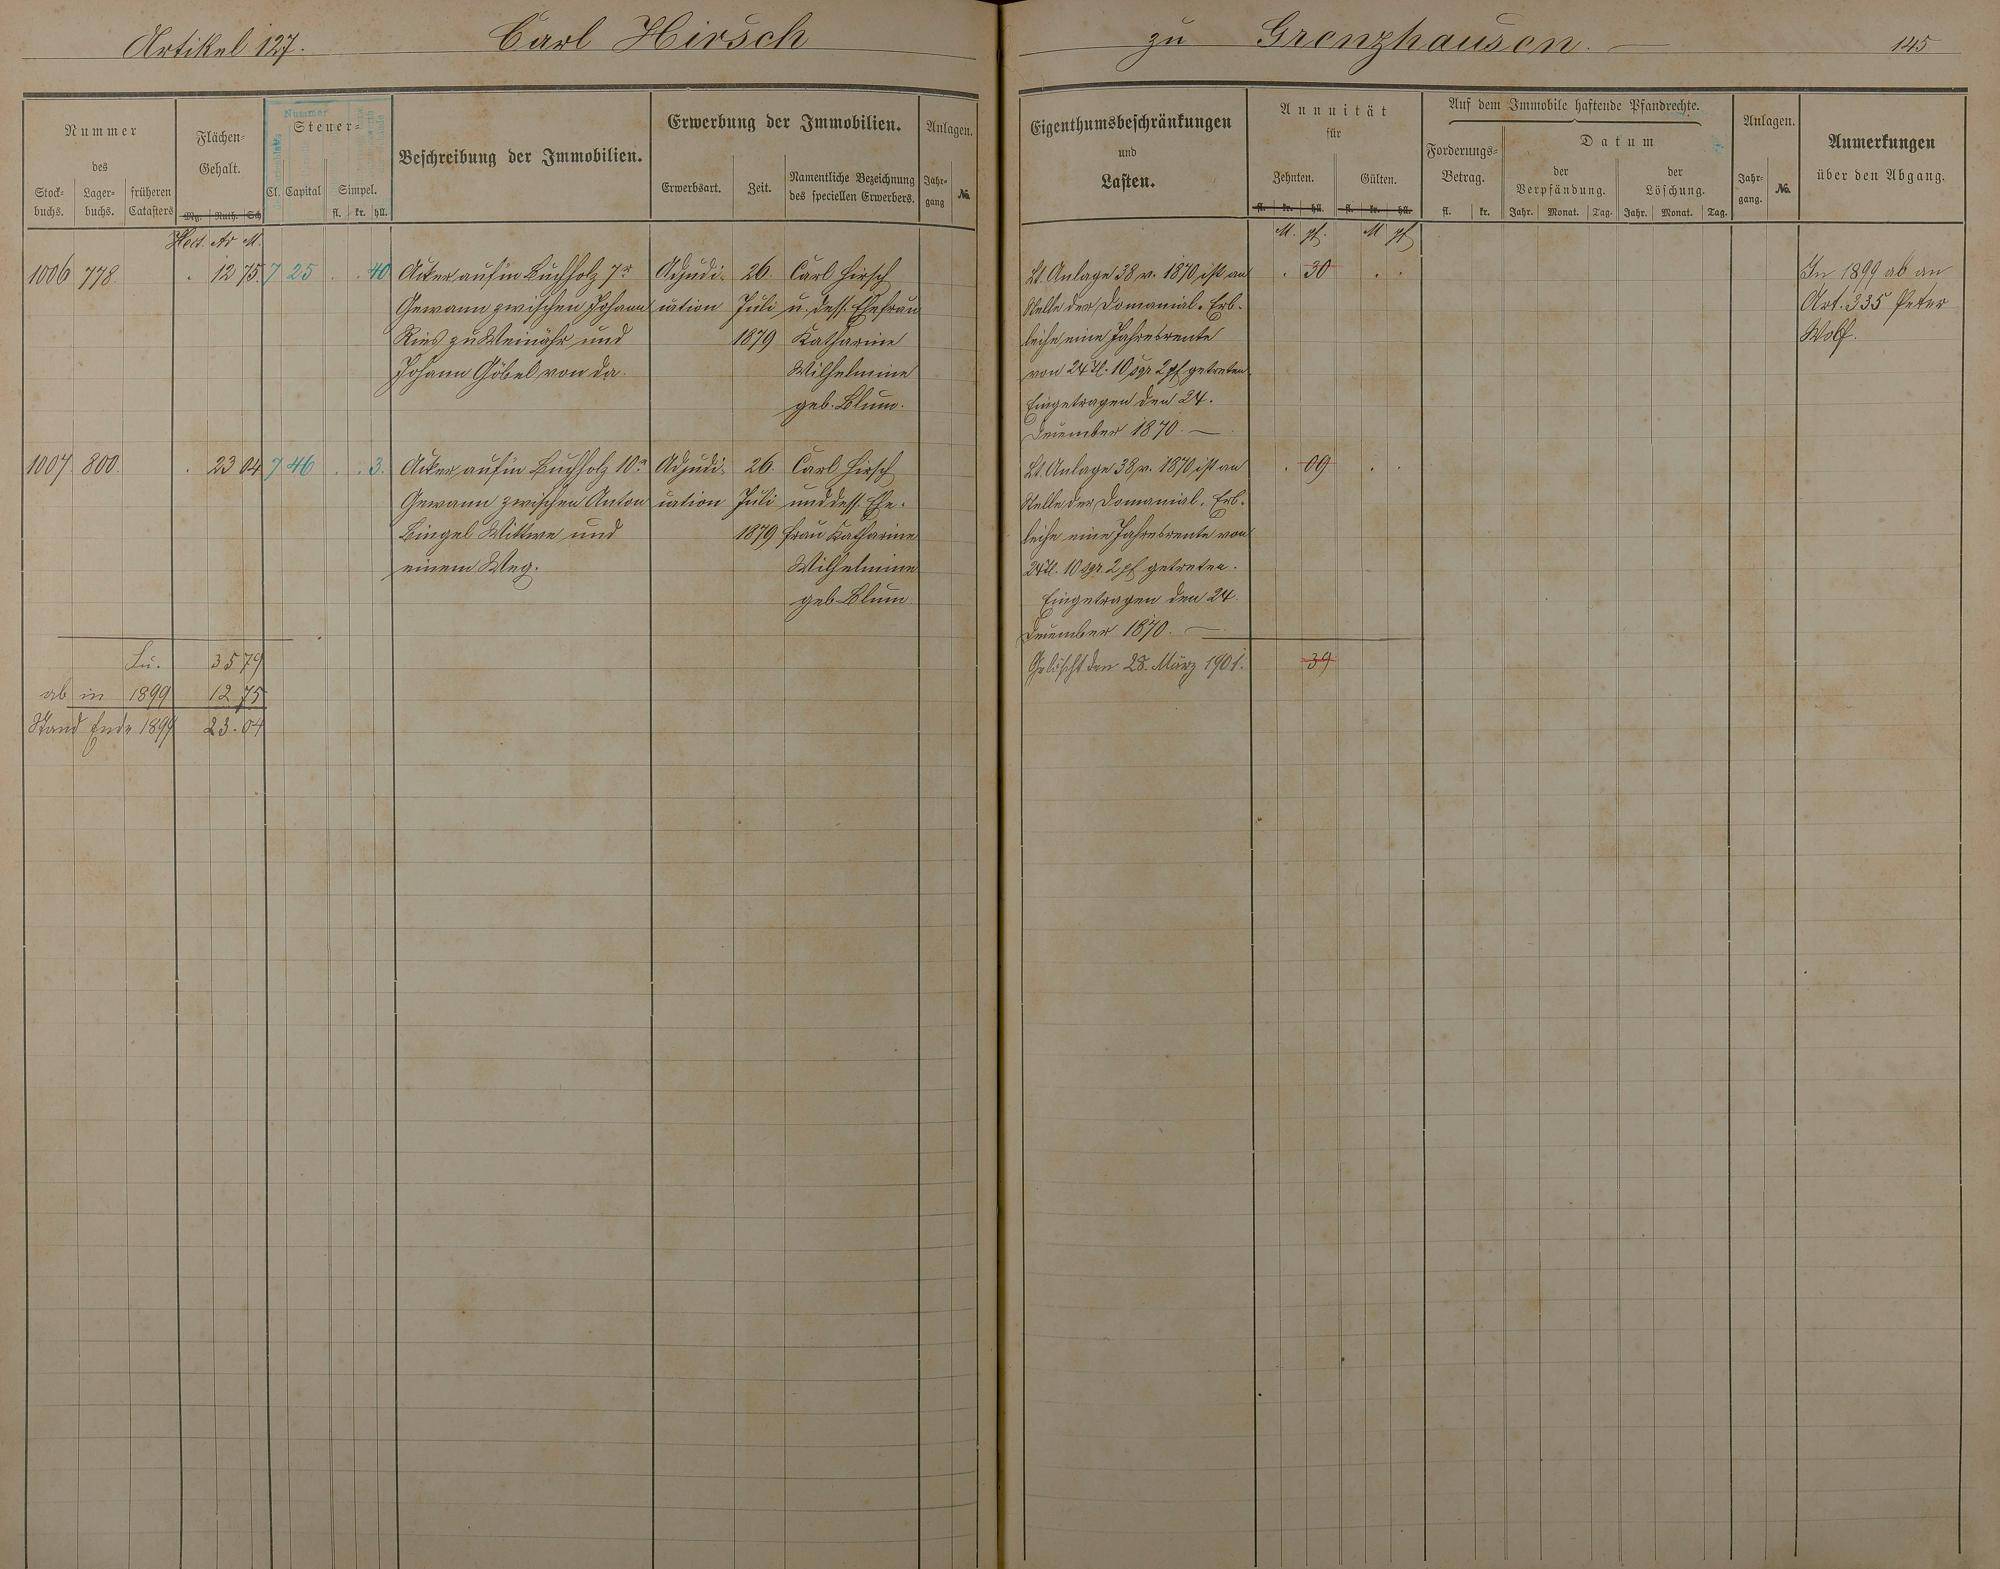 Artikel 127. Carl Hirsch zu Grenzhausen. 145
Nummer
des
Stock-buchs. Lager-buchs. früheren Catasters
Flächen-Gehalt.
Mg. Ruth. Sch
Hect. Ar M.
Nummer
Steuer-
Cl. Capital Simpel.
fl. kr. hll.
Beschreibung der Immobilien.
Erwerbung der Immobilien.
Erwerbsart. Zeit. Namentliche Bezeichnung des speciellen Erwerbers.
Anlagen.
Jahr-gang No.
Eigenthumsbeschränkungen
und
Lasten.
Annuität
für
Zehnten. Gülten.
fl. kr. hll. fl. kr. hll.
M. pf. M pf
Auf dem Immobile haftende Pfandrechte.
Forderungs-Betrag.
fl. kr.
Datum
der Verpfändung. der Löschung.
Jahr. Monat. Tag. Jahr. Monat. Tag.
Anlagen.
Jahr-gang. No.
Anmerkungen
über den Abgang.
1006 778. . 12 75. 7 25 . . 40
Acker auf'm Buchholz 7r
Gewann zwischen Johann
Ries zu Weinähr und
Johann Göbel von da.
Adjudi-
cation
26.
Juli
1879
Carl Hirsch
u. dess. Ehefrau
Katharine
Wilhelmine
geb. Blum.
Lt. Anlage 38 v. 1870 ist an
Stelle der Domanial-Erb-
leihe eine Jahresrente
von 24 Tl. 10 sgr 2 pf getreten
Eingetragen den 24.
December 1870. —
. 30 . .
In 1899 ab an
Art. 335 Peter
Wolf.
1007 800. . 23 04 7 46 . . 3.
Acker auf'm Buchholz 10r
Gewann zwischen Anton
Bingel Wittwe und
einem Weg.
Adjudi-
cation
26.
Juli
1879
Carl Hirsch
und dess. Ehe-
frau Katharine
Wilhelmine
geb. Blum.
Lt. Anlage 38 v. 1870 ist an
Stelle der Domanial-Erb-
leihe eine Jahresrente von
24 Tl. 10 sgr. 2 pf getreten.
Eingetragen den 24.
December 1870. —
. 09 . .
35 79
ab in 1899 12 75
Stand Ende 1899 23.04
Gelöscht den 28. März 1901. 39